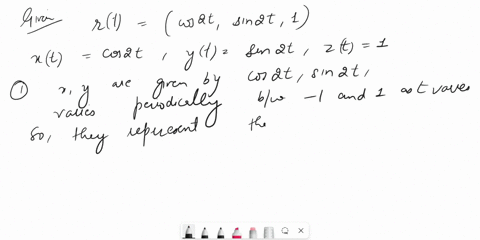 Given r(t) = (cos2t, sin2t, 1)
x(t) = cos2t, y(t) = sin2t, z(t) = 1
① x, y are given by cos2t, sin2t,
varies periodically b/w -1 and 1 as t varies
So, they represent the